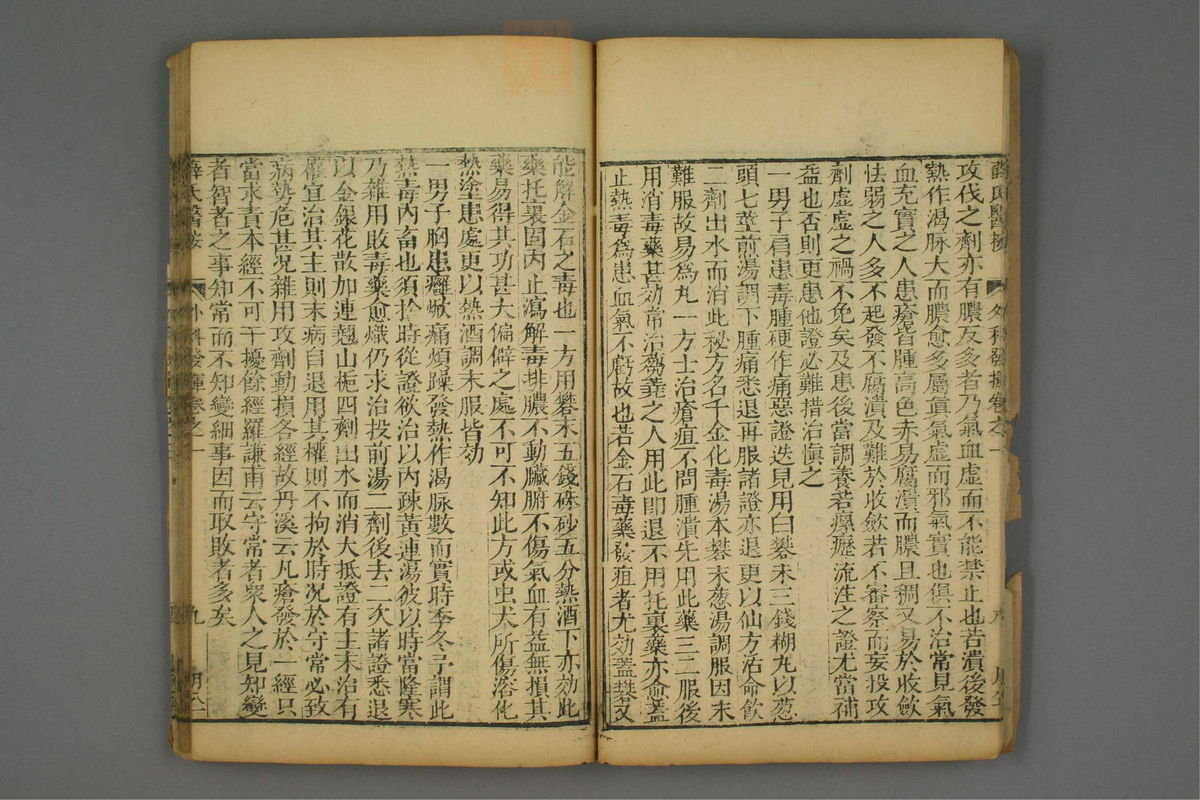 薛氏醫按 外科發揮卷之一
攻伐之劑亦有膿反多者乃氣血虛而不能禁止也若潰後發
熱作渴脉大而膿愈多屬眞氣虛而邪氣實也俱不治常見氣
血充實之人患瘡皆腫高色赤易腐潰而膿且稠又易於收斂
怯弱之人多不起發不腐潰及難於收斂若不審察而妄投攻
劑虛虛之禍不免矣及患後當調養若瘰癧流注之證尤當補
益也否則更患他證必難措治愼之
一男子肩患毒腫硬作痛惡證迭見用白礬末三錢糊丸以葱
頭七莖煎湯調下腫痛悉退再服諸證亦退更以仙方活命飲
二劑出水而消此秘方名千金化毒湯本礬末葱湯調服因末
難服故易爲丸一方士治瘡疽不問腫潰先用此藥三二服後
用消毒藥甚効常治剪蕘之人用此即退不用托裏藥亦愈蓋
止熱毒爲患血氣不虧故也若金石毒藥發疽者尤効蓋礬又
能解金石之毒也一方用礬末五錢硃砂五分熱酒下亦効此
藥托裏固内止瀉解毒排膿不動臟腑不傷氣血有益無損其
藥易得其功甚大偏僻之處不可不知此方或虫犬所傷溶化
熱塗患處更以熱酒調末服皆効
一男子胸患癰焮痛煩躁發熱作渴脉數而實時季冬予謂此
熱毒内畜也須捨時從證欲治以内疎黃連湯彼以時當隆寒
乃雜用敗毒藥愈熾仍求治投前湯二劑後去二次諸證悉退
以金銀花散加連翹山梔四劑出水而消大抵證有主末治有
權宜治其主則末病自退用其權則不拘於時况於守常必致
病勢危甚况雜用攻劑動損各經故丹溪云凡瘡發於一經只
當求責本經不可干擾餘經羅謙甫云守常者衆人之見知變
者智者之事知常而不知變細事因而取敗者多矣
薛氏醫按 外科發揮卷之一 九